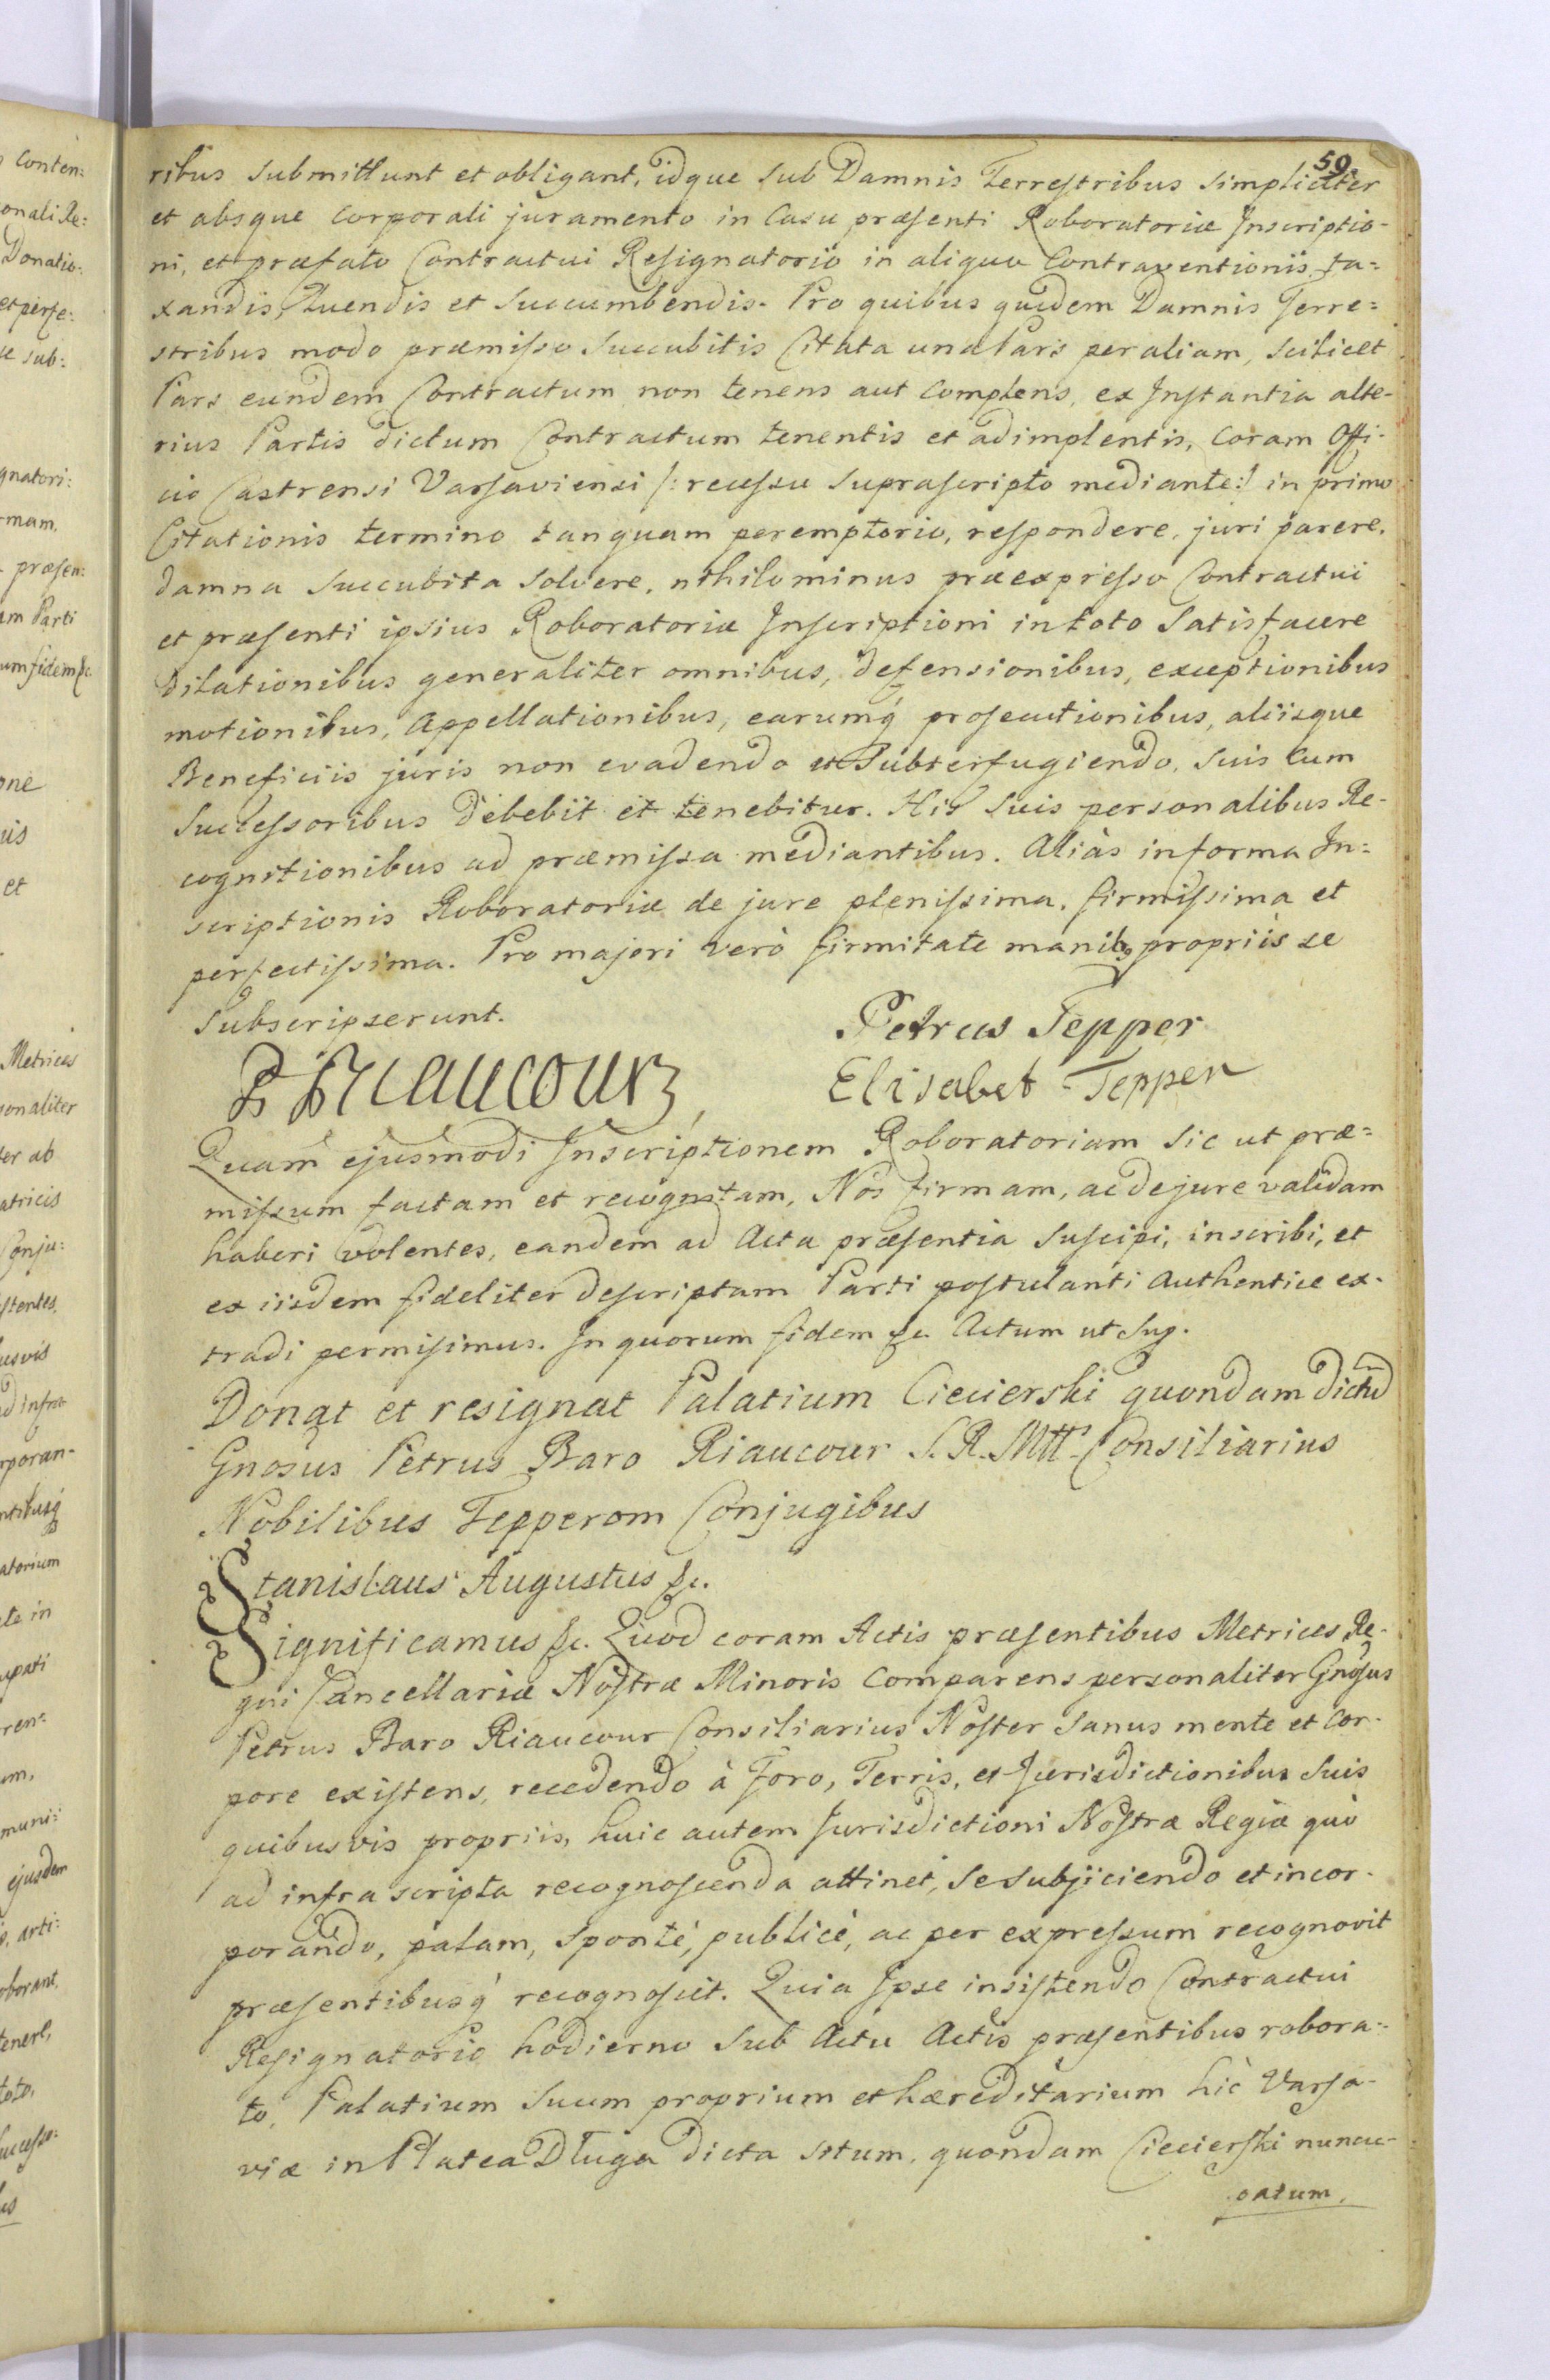 59
ribus submittunt et obligant, idque sub Damnis Terrestribus simpliciter
et absque corporali juramento in Casu præsenti Roboratoriæ Inscriptio-
ni, et præfato Contractui Resignatorio in aliquo Contraventionis ta=
xandis, Luendis et Succumbendis. Pro quibus quidem Damnis Terre=
stribus modo præmisso Succubitis Citata una Pars per aliam, scilicet
Pars eundem Contractum non tenens aut complens, ex Instantia alte-
rius Partis dictum Contractum tenentis et adimplentis, coram Offi-
cio Castrensi Varsaviensi /: recessu suprascripto mediante :/ in primo
Citationis termino tanquam peremptorio, respondere, juri parere,
damna succubita solvere, nihilominus præexpresso Contractui
et præsenti ipsius Roboratoriæ Inscriptioni in toto Satisfacere
Dilationibus generaliter omnibus, defensionibus, exceptionibus
motionibus, Appellationibus, earumq́ prosecutionibus, aliisque
Beneficiis juris non evadendo et Subterfugiendo, suis cum
Successoribus debebit et tenebitur. His suis personalibus Re-
cognitionibus ad præmissa mediantibus. Aliàs in forma In=
scriptionis Roboratoriæ de jure plenissima, firmissima et
perfectissima. Pro majori verò firmitate manibꝫ propriis se
Subscripserunt.
Petrus Tepper
P Riaucour,
Elisabet Tepper
Quam ejusmodi Inscriptionem Roboratoriam sic ut præ=
missum factam et recognitam, Nos firmam, ac de jure validam
haberi volentes, eandem ad Acta præsentia suscipi, inscribi, et
ex iisdem fideliter descriptam Parti postulanti Authentice ex-
tradi permisimus. In quorum fidem &c. Actum ut sup.
Donat et resignat Palatium Ciecierski quondam dictũ
Gnosus Petrus Baro Riaucour S. R. Mtt. Consiliarius
Nobilibus Tepperom Conjugibus
Stanislaus Augustus &c.
Significamus &c. Quod coram Actis præsentibus Metrices Re-
gni Cancellariæ Nostræ Minoris Comparens personaliter Gnosus
Petrus Baro Riaucour Consiliarius Noster sanus mente et cor-
pore existens, recedendo à Foro, Terris, et Jurisdictionibus suis
quibusvis propriis, huic autem Jurisdictioni Nostræ Regiæ quò
ad infra scripta recognoscenda attinet, se subjiciendo et incor-
porando, palam, spontè, publicè, ac per expressum recognovit
præsentibusq́ recognoscit. Quia Ipse insistendo Contractui
Resignatorio hodierno sub Actu Actis præsentibus robora-
to, Palatium suum proprium et hæreditarium hìc Varsa-
viæ in Platea Długa dicta situm, quondam Ciecierski nuncu-
patum,